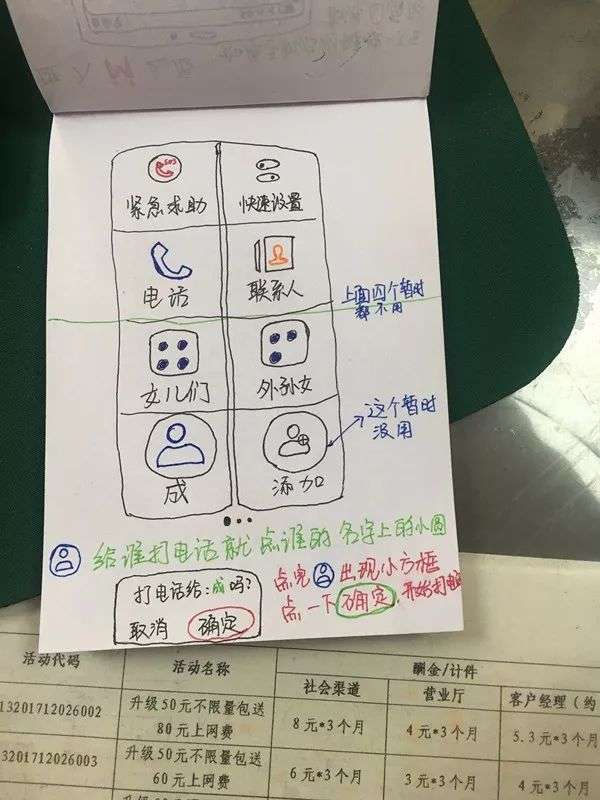 SOS
紧急求助 快速设置
电话 联系人
上面四个暂时
都不用
女儿们 外孙女
这个暂时
没用
成 添加
给谁打电话就点谁的名字上的小圆
打电话给:成吗?
取消 确定
点完 出现小方框
点一下确定,开始打电话
活动代码 活动名称 酬金/计件
社会渠道 营业厅 客户经理(约
13201712026002 升级50元不限量包送 8元*3个月 4元*3个月 5.3元*3个月
80元上网费
3201712026003 升级50元不限量包送 6元*3个月 3元*3个月 4元*3个月
60元上网费